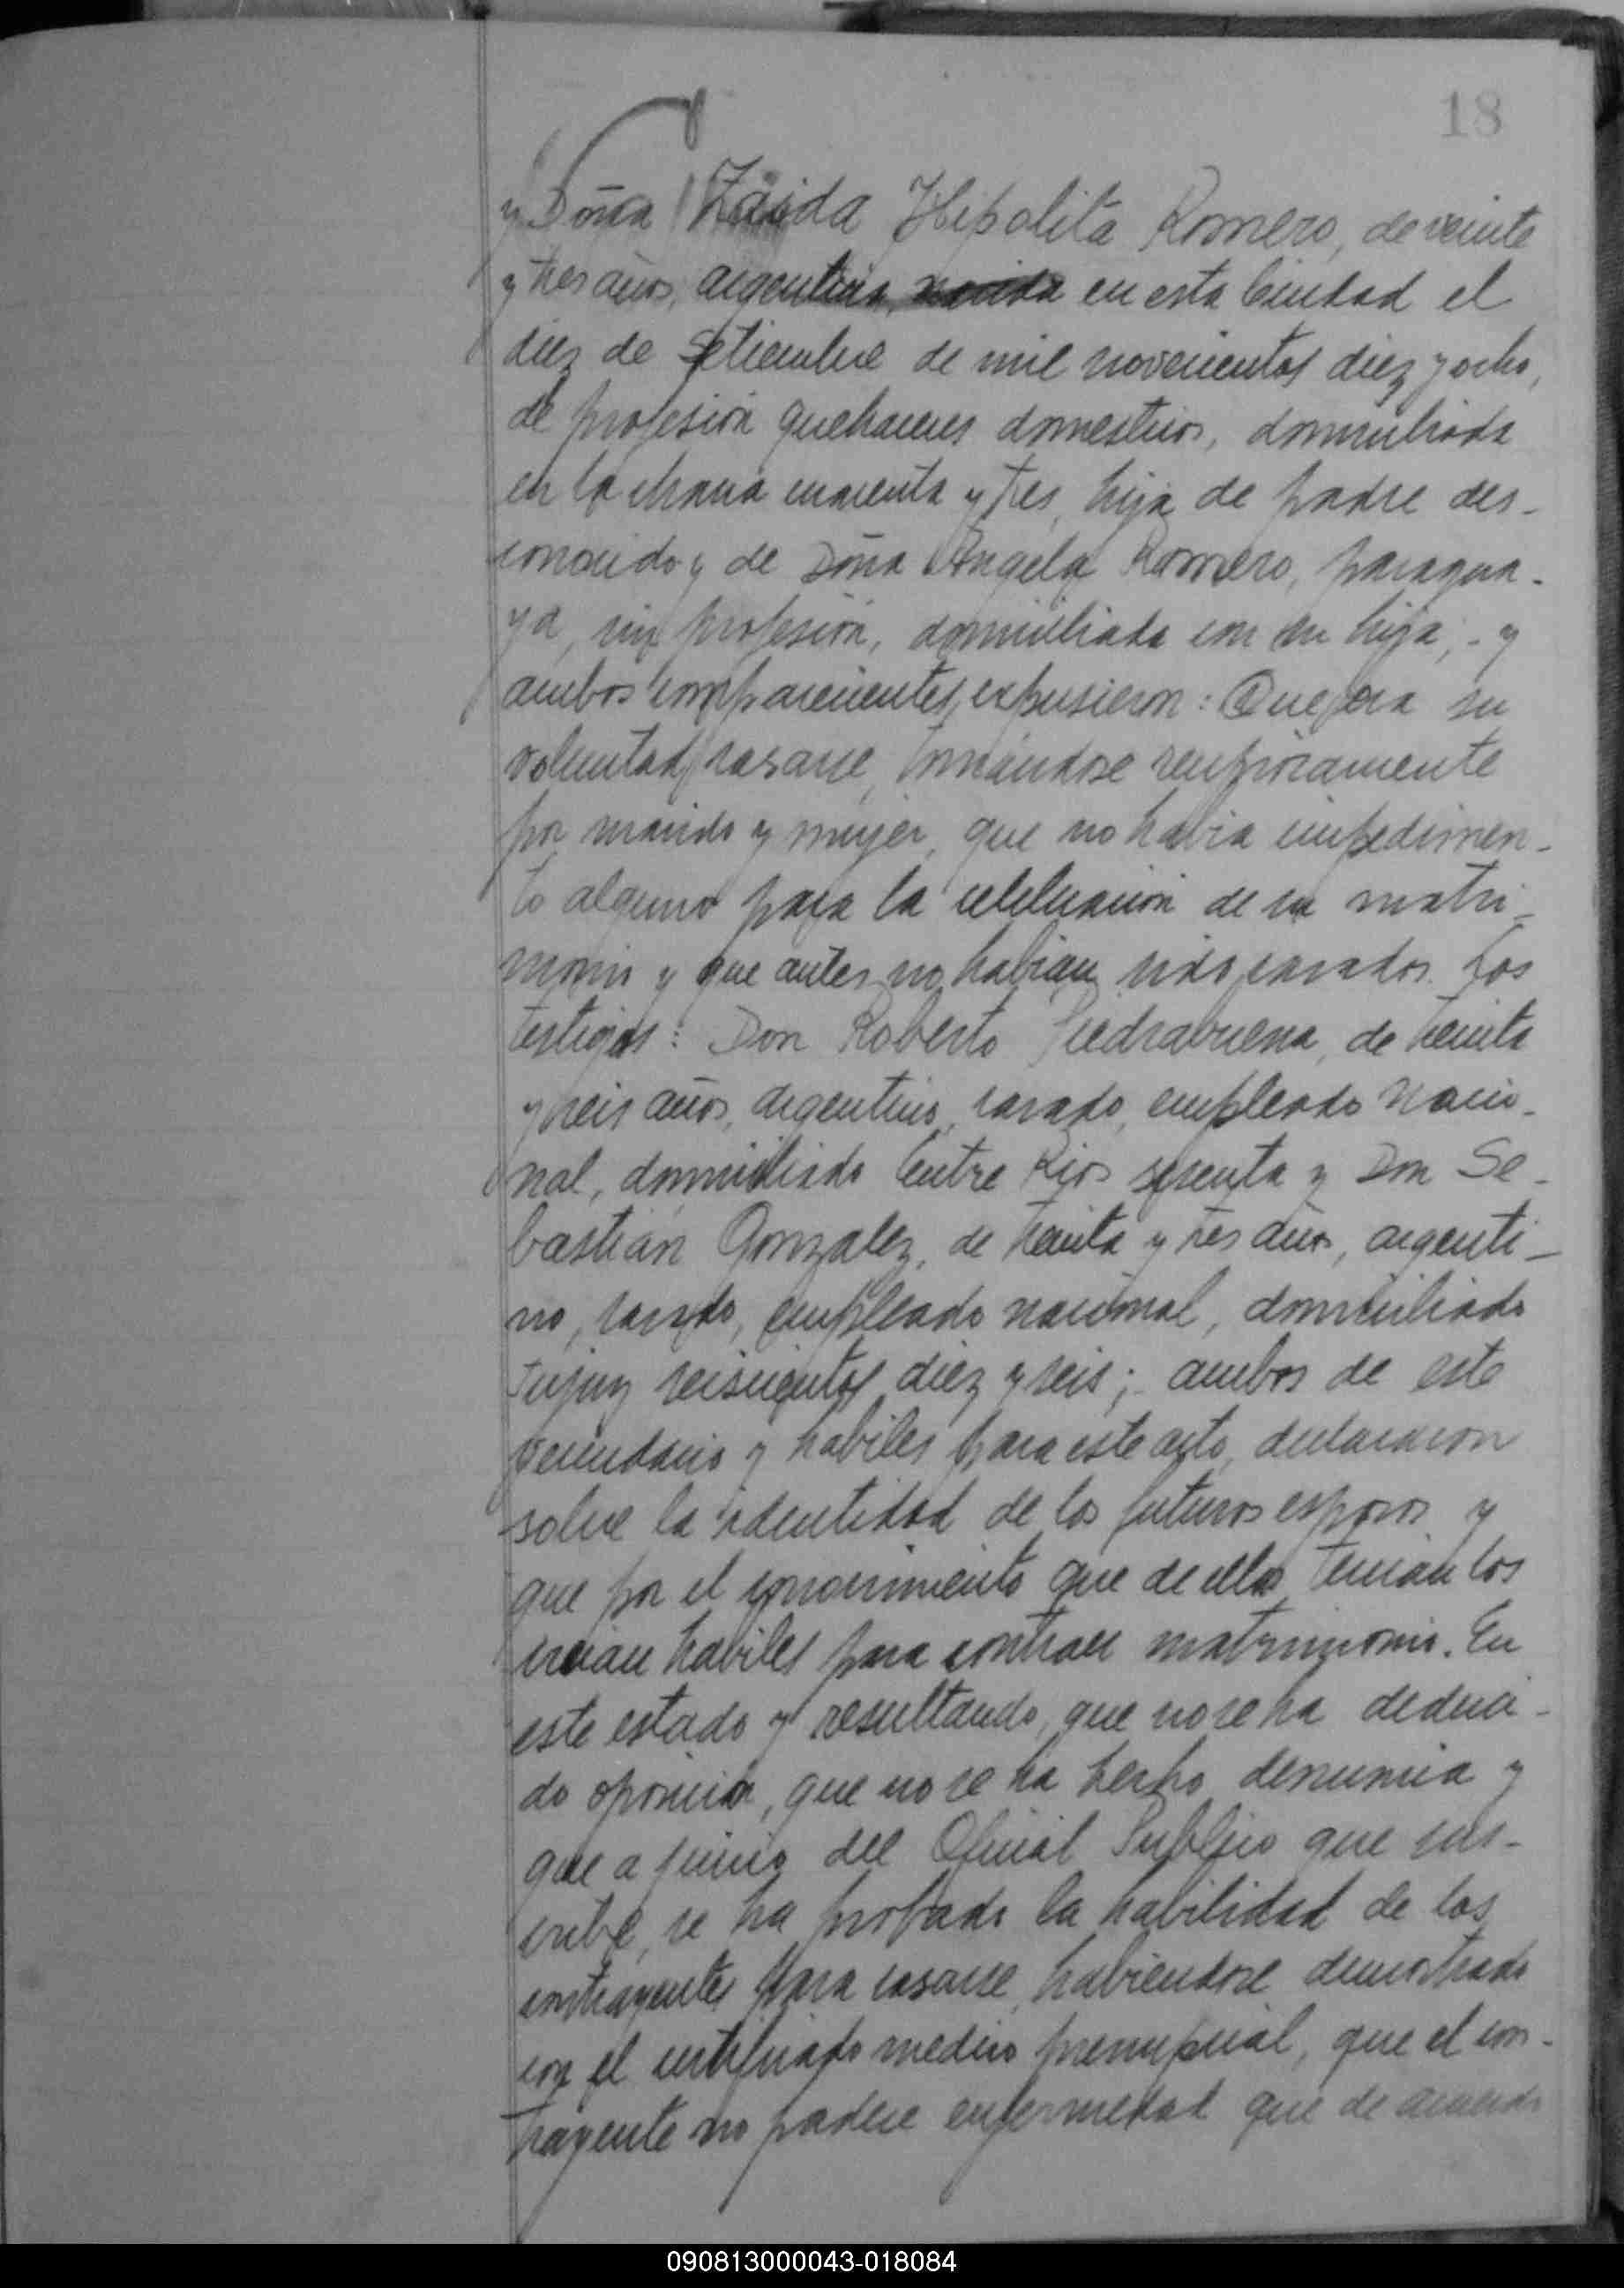 18
y Doña Zaida Hipolita Romero, de veinte
y tres años, argentina, nacida en esta Ciudad el
diez de Setiembre de mil novecientos diez y ocho,
de profesión quehaceres domesticos, domiciliada
en la chacra cuarenta y tres, hija de padre des-
conocido y de Doña Angela Romero, paragua-
ya, sin profesión, domiciliada con su hija; - y
ambos comparecientes, expusieron: Que era su
voluntad casarse, tomándose recíprocamente
por marido y mujer, que no habia impedimen-
to alguno para la celebración de su matri-
monio y que antes no habian sido casados. Los
testigos: Don Roberto Piedrabuena, de treinta
y seis años, argentino, casado, empleado nacio-
nal, domiciliado Entre Rios sesenta y Don Se-
bastián Gonzalez, de treinta y tres años, argenti-
no, casado, empleado nacional, domiciliado
Jujuy seiscientos diez y seis; ambos de este
vecindario y habiles para este acto, declararon
sobre la identidad de los futuros esposos y
que por el conocimiento que de ellos tenian los
creian habiles para contraer matrimonio. En
este estado y resultando, que no se ha deduci-
do oposición, que no se ha hecho denuncia y
que a juicio del Oficial Publico que sus-
cribe, se ha probado la habilidad de los
contrayentes para casarse, habiendose demostrado
con el certificado medico prenupcial, que el con-
trayente no padece enfermedad que de acuerdo
090813000043-018084